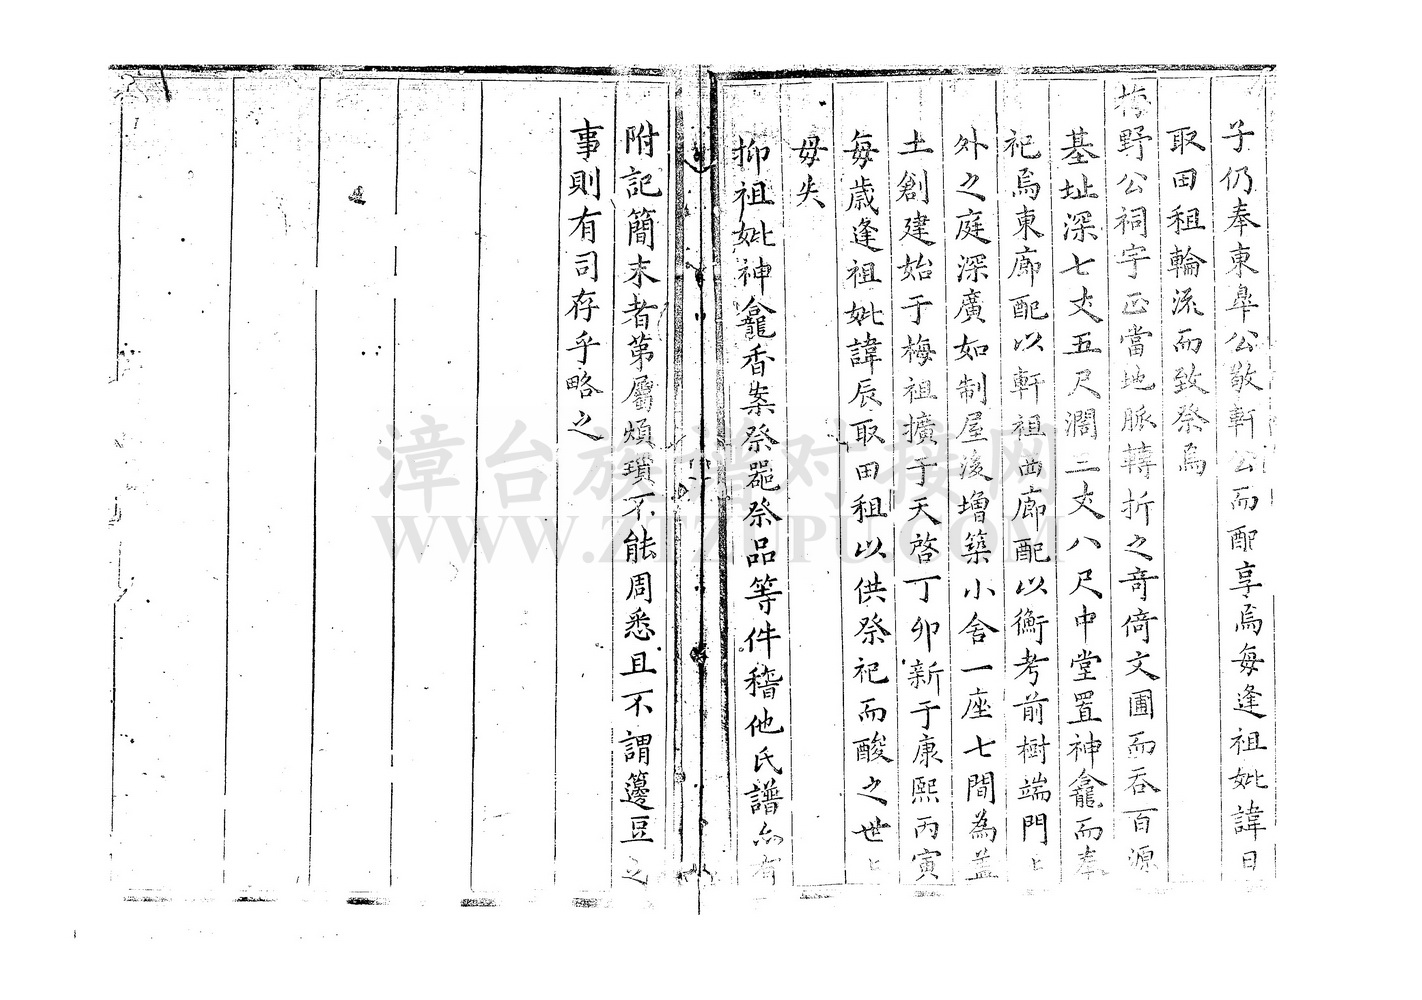 子仍奉東皐公敬軒公而配享焉每逢祖妣諱日
取田租輪流而致祭焉
梅野公祠宇正當地脈轉折之奇倚文圃而吞百源
基址深七丈五尺濶二丈八尺中堂置神龕而奉
祀焉東廊配以軒祖西廊配以衡考前樹端門
外之庭深廣如制屋後增築小舍一座七間為盖
土創建始于梅祖擴于天啓丁卯新于康熙丙寅
每歲逢祖妣諱辰取田租以供祭祀而酸之世
毋失
抑祖妣神龕香案祭噐祭品等件稽他氏譜亦有
附記簡末者第屬煩瑣不能周悉且不謂籩豆之
事則有司存乎略之
漳台族谱对接网
WWW.ZTZUPU.COM